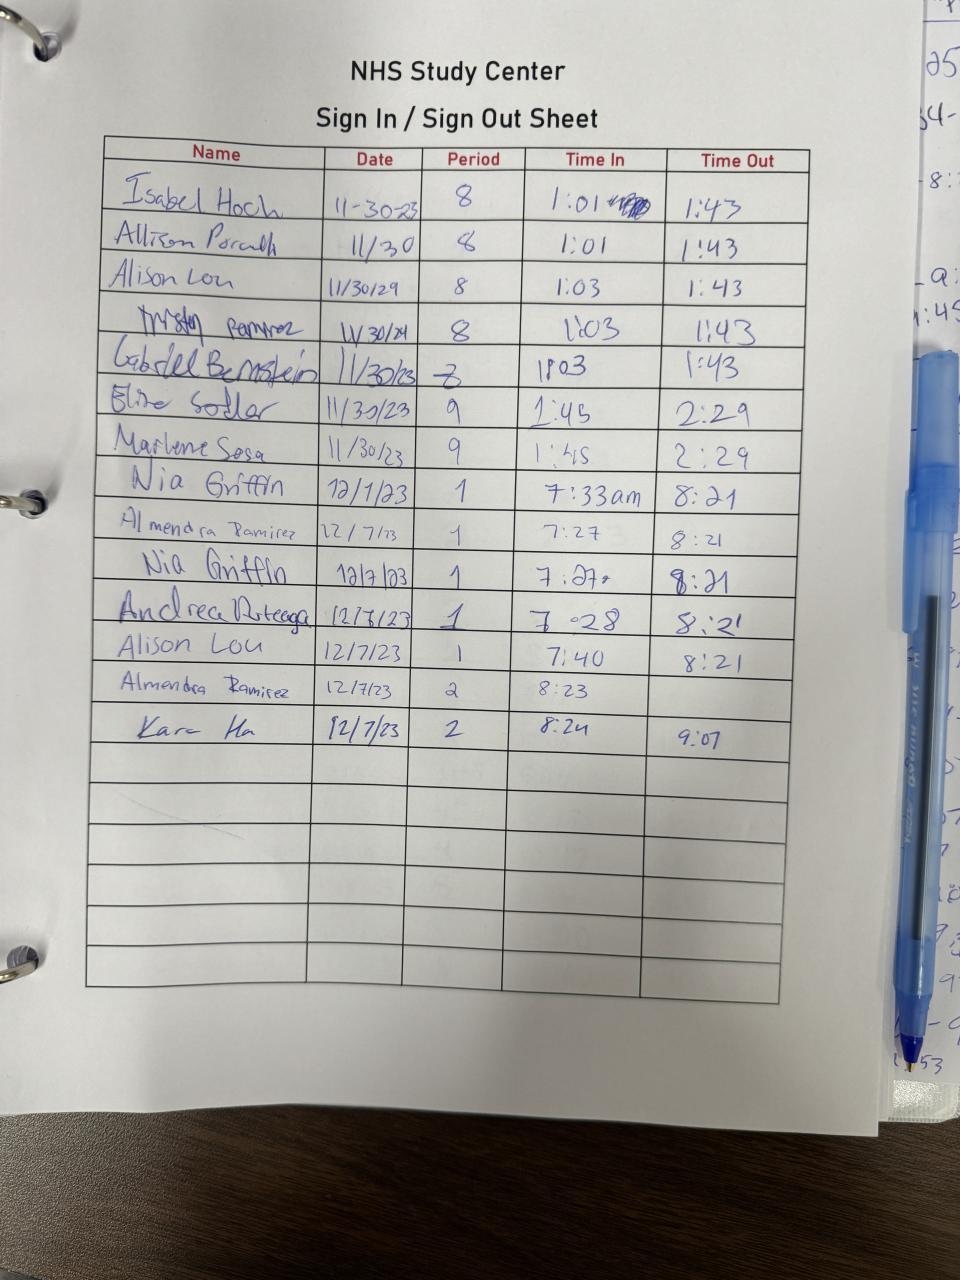 NHS Study Center
Sign In / Sign Out Sheet
Name Date Period Time In Time Out
Isabel Hoch 11-30-23 8 1:01 1:43
Allison 11/30 8 1:01 1:43
Alison Lou 11/30/29 8 1:03 1:43
Ramirez 11/30/24 8 1:03 1:43
Gabriel Bernstein 11/30/23 1:03 1:43
11/30/23 9 1:45 2:29
Marlene Sosa 11/30/23 9 1:45 2:29
Nia Griffin 12/7/23 1 7:33am 8:21
Almendra Ramirez 12/7/23 1 7:27 8:21
Nia Griffin 12/7/23 1 7:27 8:21
Andrea Arteaga 12/7/23 1 7:28 8:21
Alison Lou 12/7/23 1 7:40 8:21
Almendra Ramirez 12/7/23 2 8:23
Kara Ha 12/7/23 2 8:24 9:07